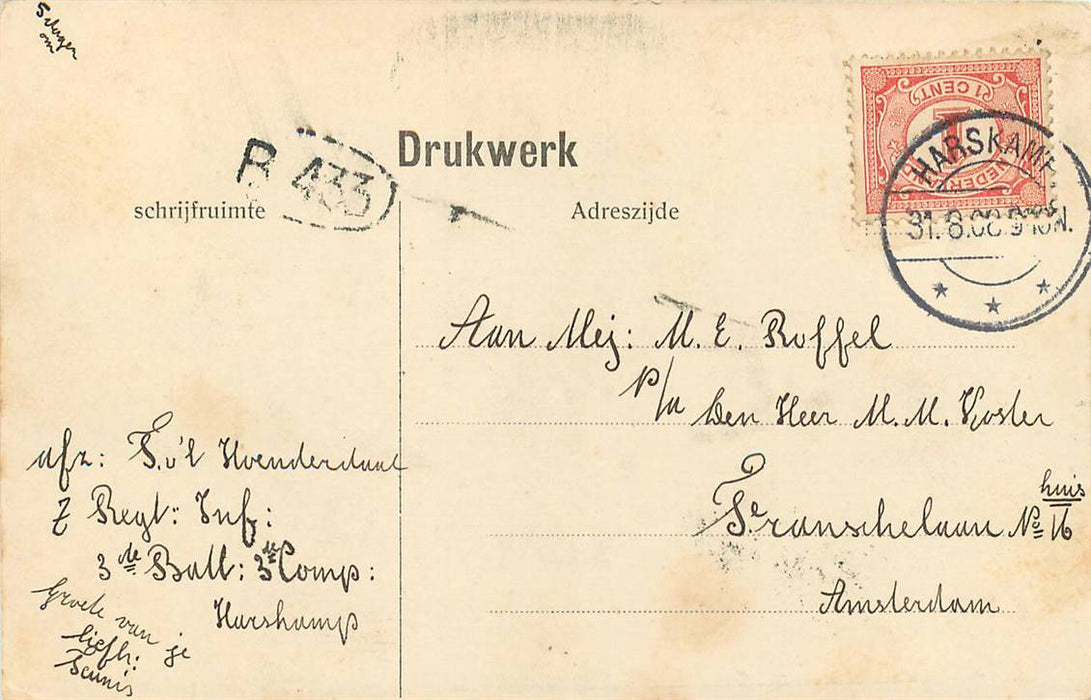 5 dagen
om
Drukwerk
B 433
schrijfruimte
Adreszijde
1 CENT
1
NEDER
HARSKAMP
31.8.08 9-10N.
Aan Mej: M. E. Roffel
p/a den Heer M. M. Koster
Franschelaan No 16 huis
Amsterdam
afz: T. v't Hoenderdaal
7 Regt: Inf:
3de Batt: 3de Comp:
Harskamp
Groete van je
liefh:
Teunis